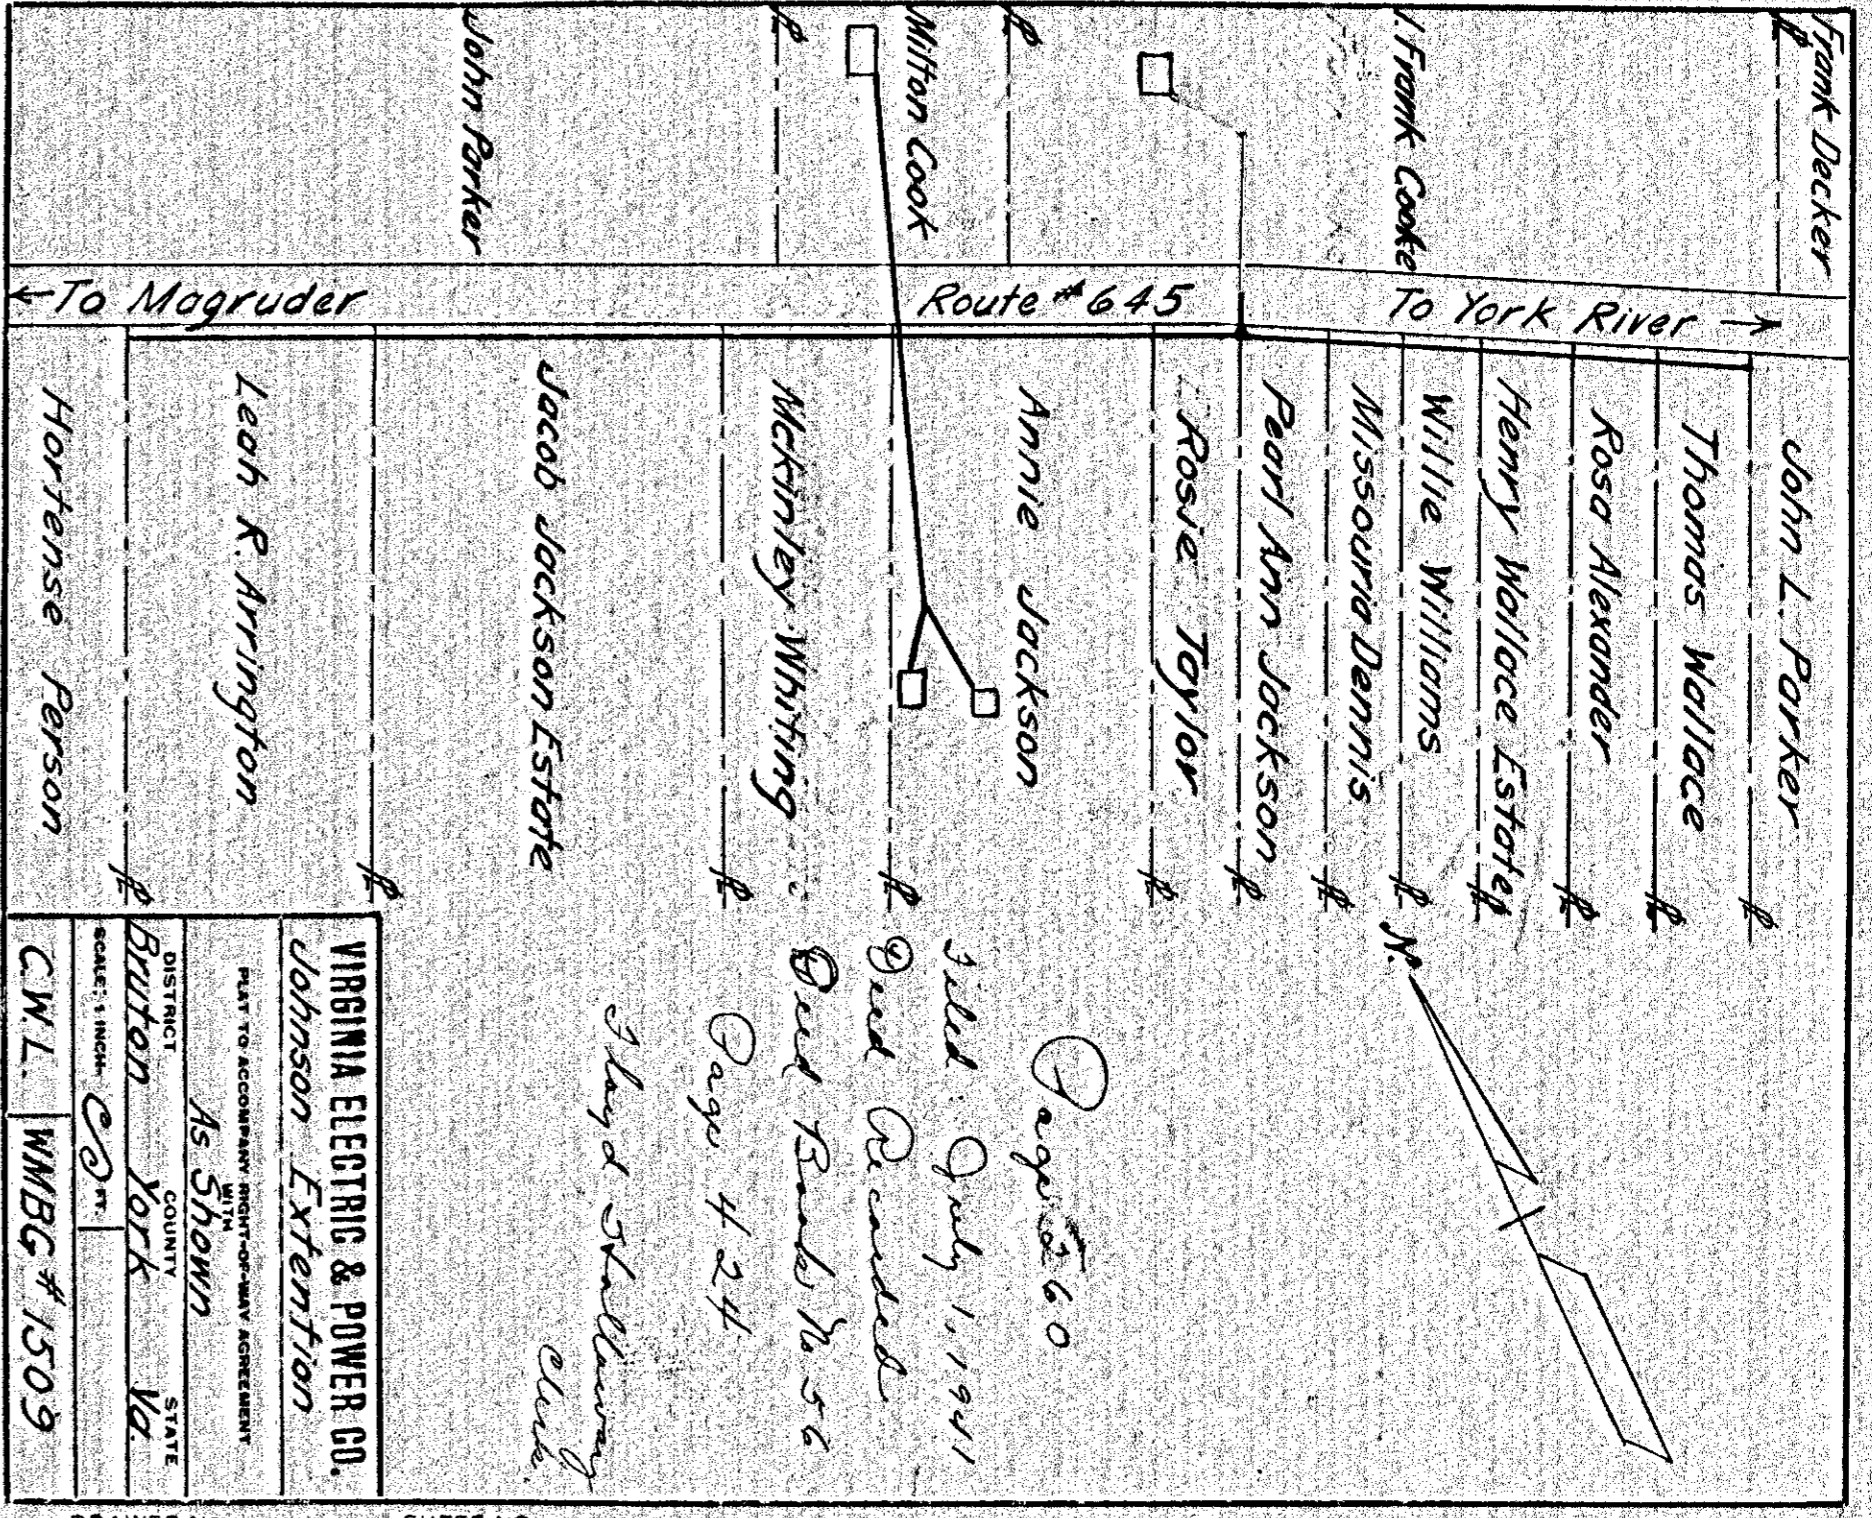 Frank Decker
I. Frank Cooke
Milton Cook
John Parker
← To Magruder
Route #645
To York River →
John L. Parker
Thomas Wallace
Rosa Alexander
Henry Wallace Estate
Willie Williams
Missouria Dennis
Pearl Ann Jackson
Rosie Taylor
Annie Jackson
McKinley Whiting
Jacob Jackson Estate
Leah R. Arrington
Hortense Person
N.
Page 260
Filed July 1, 1941
Deed Recorded
Deed Book No 56
Page 424
Floyd Holloway
Clerk.
VIRGINIA ELECTRIC & POWER CO.
Johnson Extention
PLAT TO ACCOMPANY RIGHT-OF-WAY AGREEMENT
WITH
As Shown
DISTRICT COUNTY STATE
Bruton York Va.
SCALE: 1 INCH= FT.
C.W.L. WMBG #1509